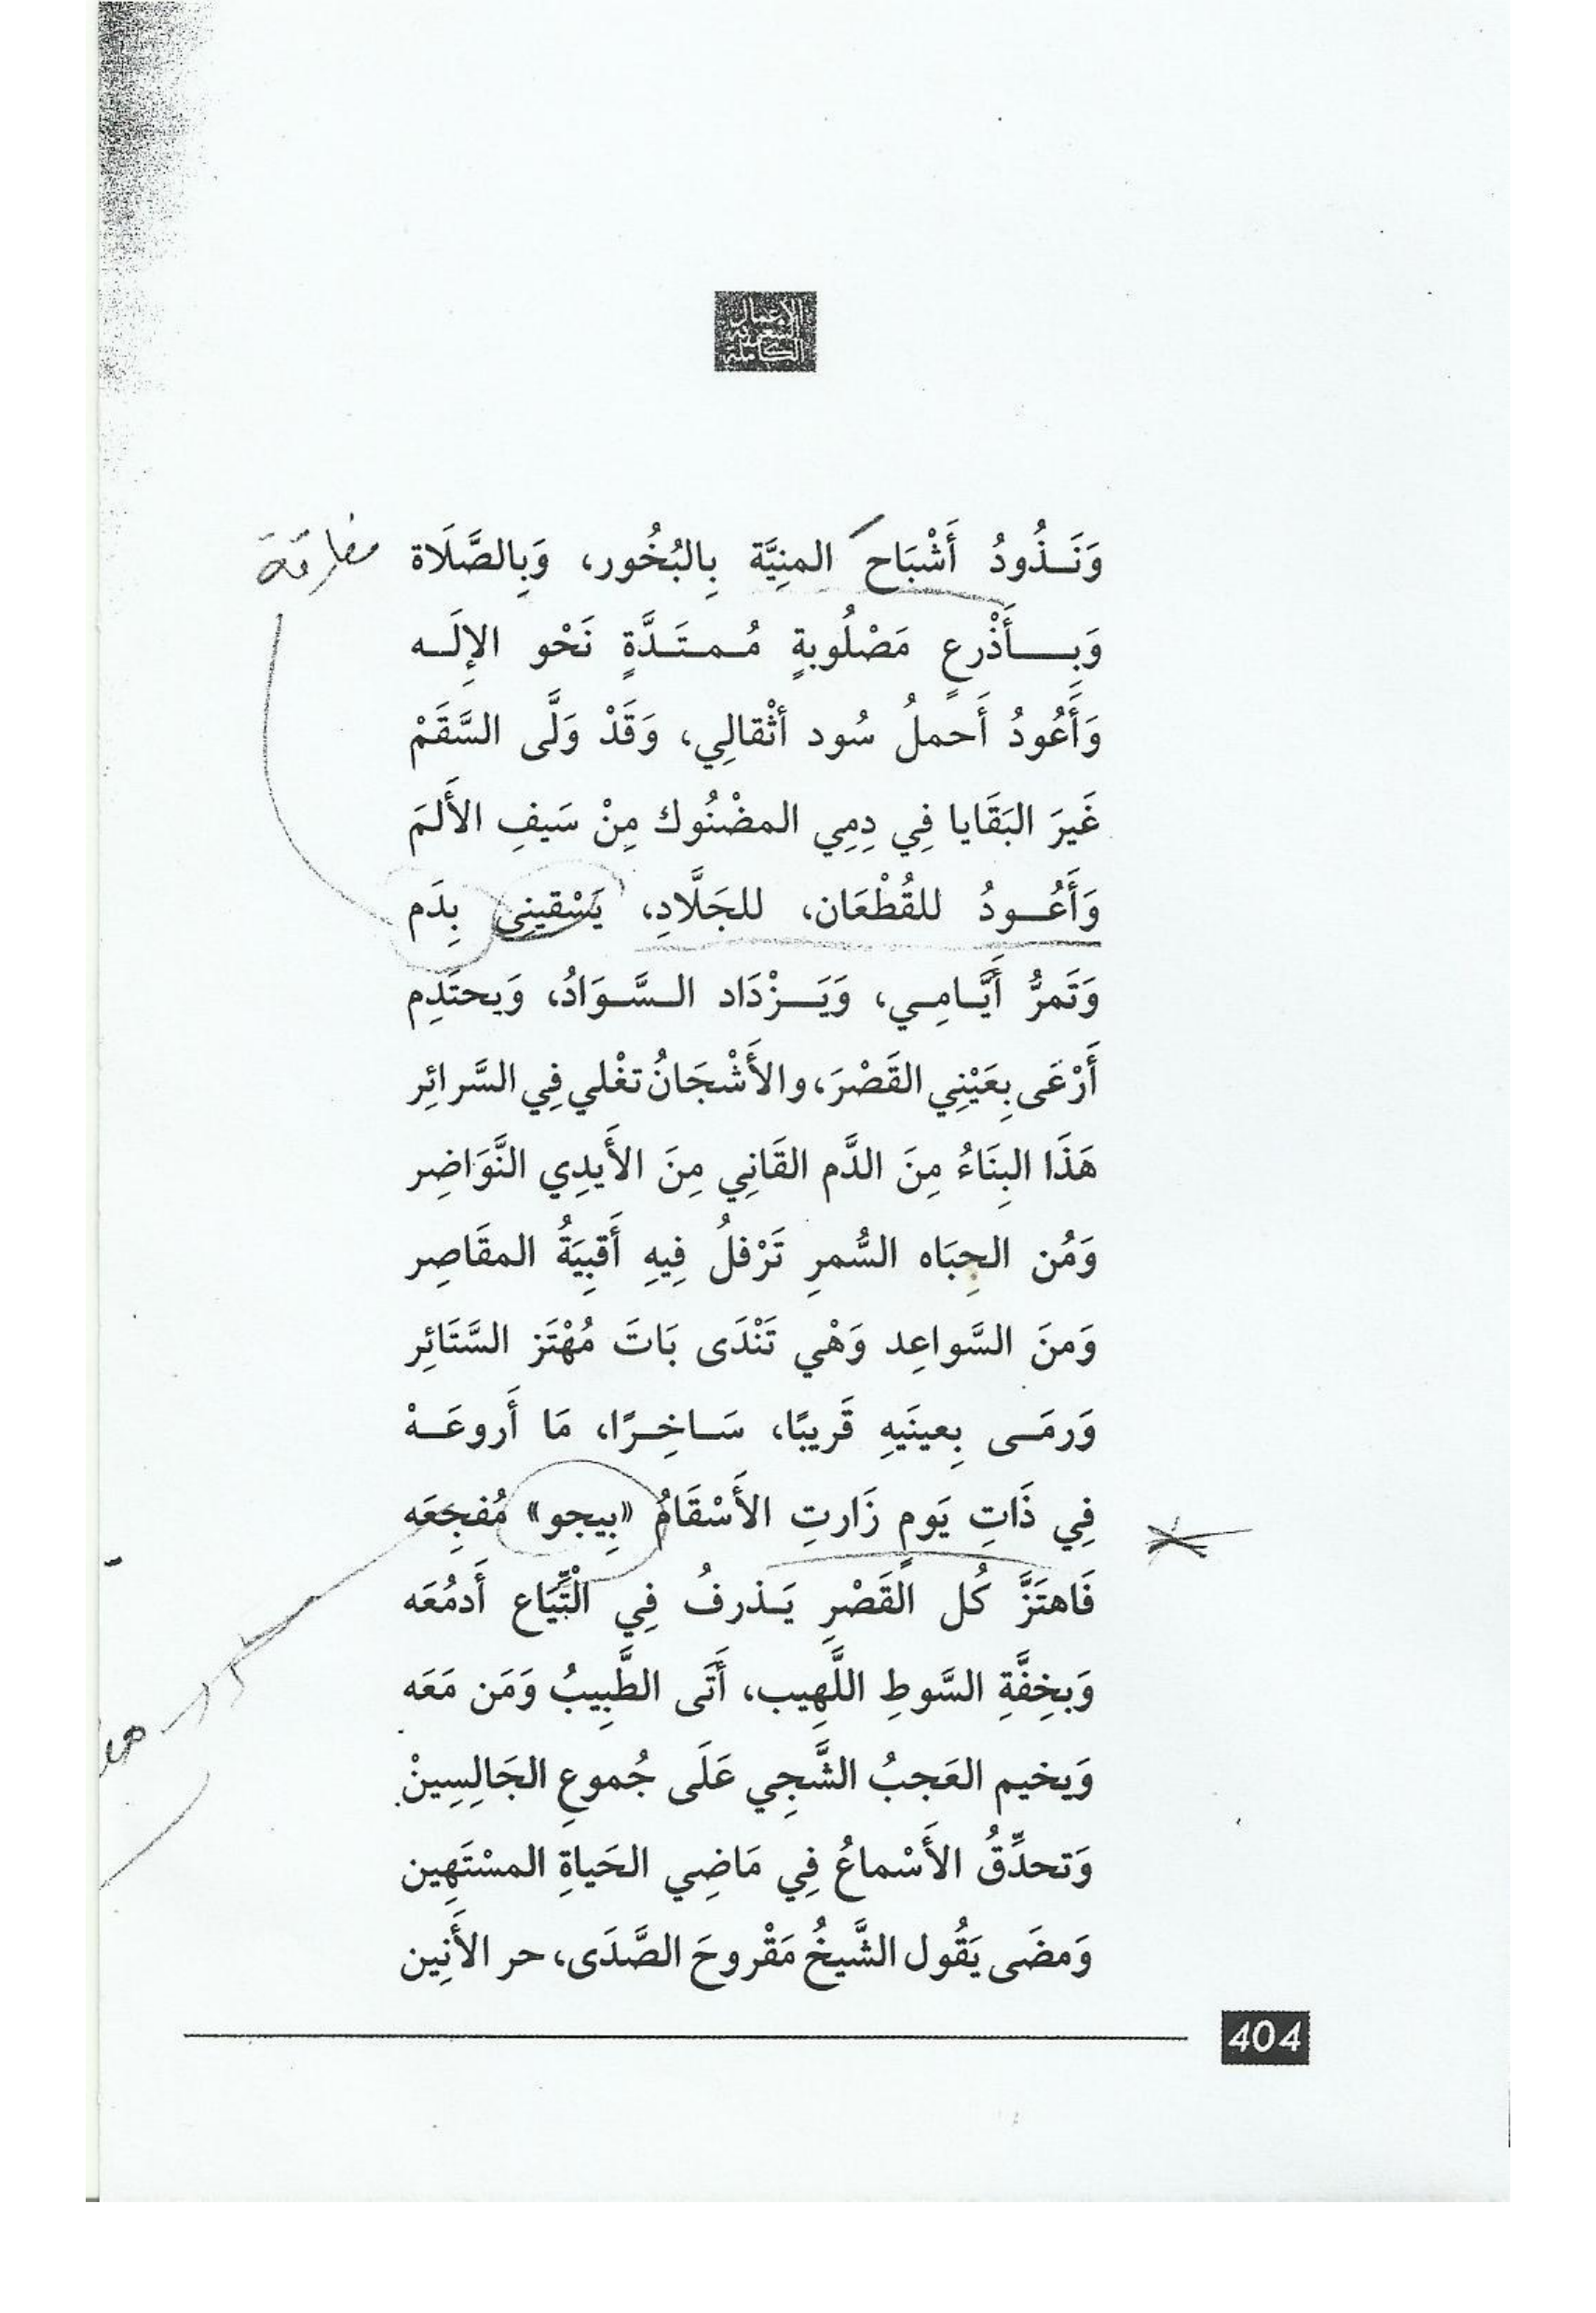 الأعمال
الشعرية
الكاملة
وَنَـذُودُ أَشْبَاحَ المنِيَّة بِالبُخُور، وَبِالصَّلَاة
مفارقة
وَبِـــأَذْرعٍ مَصْلُوبةٍ مُـمـتَـدَّةٍ نَحْو الإلَـه
وَأَعُودُ أَحملُ سُود أثْقالِي، وَقَدْ وَلَّى السَّقَمْ
غَيرَ البَقَايا فِي دِمِي المضْنُوك مِنْ سَيفِ الأَلمَ
وَأَعُــودُ للقُطْعَان، للجَلَّادِ، يَسْقينِي بِدَم
وَتَمرُّ أَيَّـامِـي، وَيَــزْدَاد الـسَّـوَادُ، وَيحتَدِم
أَرْعَى بِعَيْنِي القَصْرَ، والأَشْجَانُ تغْلي فِي السَّرائِر
هَذَا البِنَاءُ مِنَ الدَّم القَانِي مِنَ الأَيدِي النَّوَاضِر
وَمُن الجِبَاه السُّمرِ تَرْفلُ فِيهِ أَقبِيَةُ المقَاصِر
وَمنَ السَّواعِد وَهْي تَنْدَى بَاتَ مُهْتَز السَّتَائِر
وَرمَـى بِعينَيهِ قَريبًا، سَـاخِـرًا، مَا أَروعَـهْ
فِي ذَاتِ يَومٍ زَارتِ الأَسْقَامُ «بِيجو» مُفجِعَه
فَاهتَزَّ كُل القَصْرِ يَـذرفُ فِي الْتِّيَاع أَدمُعَه
وَبخِفَّةِ السَّوطِ اللَّهِيب، أَتَى الطَّبِيبُ وَمَن مَعَه
وَيخيم العَجبُ الشَّجِي عَلَى جُموعِ الجَالِسِينْ
وَتحدِّقُ الأَسْماعُ فِي مَاضِي الحَياةِ المسْتَهِين
وَمضَى يَقُول الشَّيخُ مَقْروحَ الصَّدَى، حر الأَنِين
404